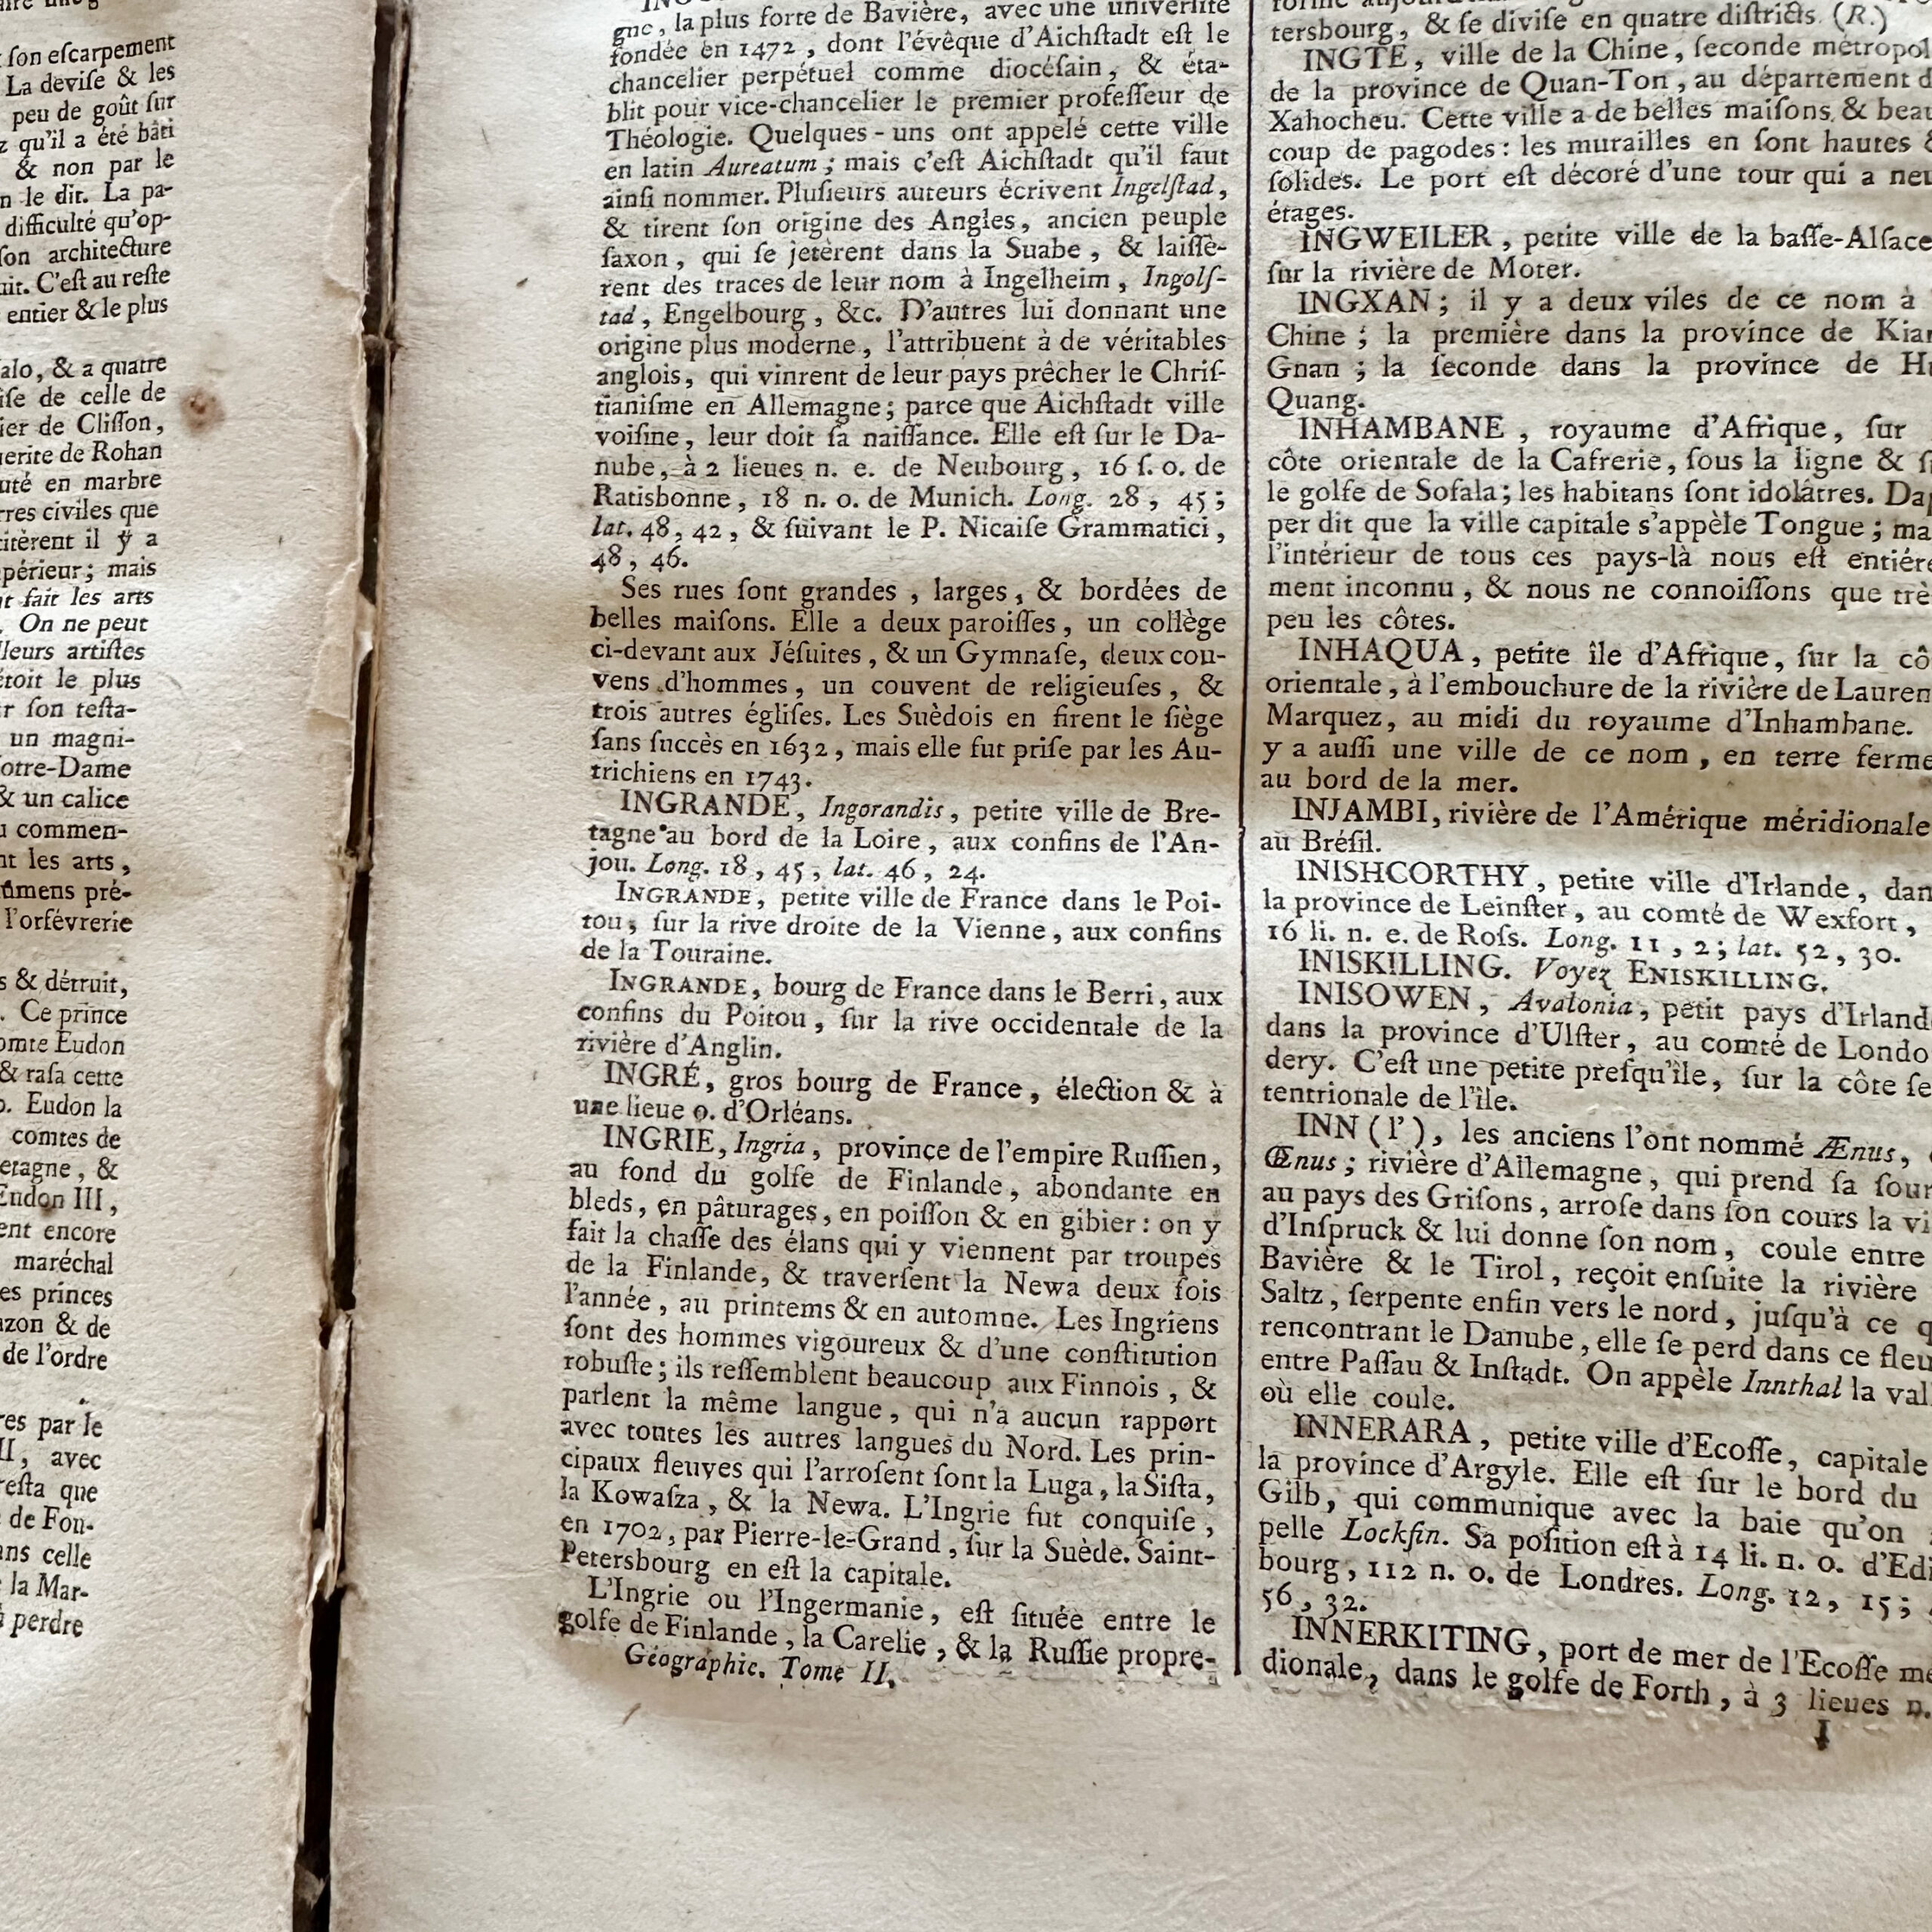 son escarpement
La devise & les
peu de goût sur
qu'il a été bâti
& non par le
le dit. La pa-
difficulté qu'op-
son architecture
C'est au reste
entier & le plus
& a quatre
de celle de
de Clisson,
de Rohan
en marbre
civiles que
il y a
mais
fait les arts
On ne peut
artistes
le plus
son testa-
un magni-
Notre-Dame
& un calice
commen-
les arts,
pré-
l'orfévrerie
& détruit,
Ce prince
comte Eudon
& rasa cette
Eudon la
comtes de
&
Eudon III,
encore
maréchal
princes
& de
de l'ordre
par le
II, avec
que
de Fon-
celle
la Mar-
perdre
gne, la plus forte de Bavière, avec une université
fondée en 1472, dont l'évêque d'Aichstadt est le
chancelier perpétuel comme diocésain, & éta-
blit pour vice-chancelier le premier professeur de
Théologie. Quelques-uns ont appelé cette ville
en latin Aureatum; mais c'est Aichstadt qu'il faut
ainsi nommer. Plusieurs auteurs écrivent Ingelstad,
& tirent son origine des Angles, ancien peuple
saxon, qui se jetèrent dans la Suabe, & laissè-
rent des traces de leur nom à Ingelheim, Ingols-
tad, Engelbourg, &c. D'autres lui donnant une
origine plus moderne, l'attribuent à de véritables
anglois, qui vinrent de leur pays prêcher le Chris-
tianisme en Allemagne; parce que Aichstadt ville
voisine, leur doit sa naissance. Elle est sur le Da-
nube, à 2 lieues n. e. de Neubourg, 16 s. o. de
Ratisbonne, 18 n. o. de Munich. Long. 28, 45;
lat. 48, 42, & suivant le P. Nicaise Grammatici,
48, 46.
Ses rues sont grandes, larges, & bordées de
belles maisons. Elle a deux paroisses, un collège
ci-devant aux Jésuites, & un Gymnase, deux cou-
vens d'hommes, un couvent de religieuses, &
trois autres églises. Les Suèdois en firent le siège
sans succès en 1632, mais elle fut prise par les Au-
trichiens en 1743.
INGRANDE, Ingorandis, petite ville de Bre-
tagne au bord de la Loire, aux confins de l'An-
jou. Long. 18, 45, lat. 46, 24.
INGRANDE, petite ville de France dans le Poi-
tou, sur la rive droite de la Vienne, aux confins
de la Touraine.
INGRANDE, bourg de France dans le Berri, aux
confins du Poitou, sur la rive occidentale de la
rivière d'Anglin.
INGRÉ, gros bourg de France, élection & à
une lieue o. d'Orléans.
INGRIE, Ingria, province de l'empire Russien,
au fond du golfe de Finlande, abondante en
bleds, en pâturages, en poisson & en gibier: on y
fait la chasse des élans qui y viennent par troupes
de la Finlande, & traversent la Newa deux fois
l'année, au printems & en automne. Les Ingriens
sont des hommes vigoureux & d'une constitution
robuste; ils ressemblent beaucoup aux Finnois, &
parlent la même langue, qui n'a aucun rapport
avec toutes les autres langues du Nord. Les prin-
cipaux fleuves qui l'arrosent sont la Luga, la Sista,
la Kowasza, & la Newa. L'Ingrie fut conquise,
en 1702, par Pierre-le-Grand, sur la Suède. Saint-
Petersbourg en est la capitale.
L'Ingrie ou l'Ingermanie, est située entre le
golfe de Finlande, la Carelie, & la Russie propre-
Géographie. Tome II.
tersbourg, & se divise en quatre districts. (R.)
INGTE, ville de la Chine, seconde métropol
de la province de Quan-Ton, au département d
Xahocheu. Cette ville a de belles maisons & beau
coup de pagodes: les murailles en sont hautes &
solides. Le port est décoré d'une tour qui a neu
étages.
INGWEILER, petite ville de la basse-Alsace
sur la rivière de Moter.
INGXAN; il y a deux viles de ce nom à
Chine; la première dans la province de Kian
Gnan; la seconde dans la province de Hu
Quang.
INHAMBANE, royaume d'Afrique, sur
côte orientale de la Cafrerie, sous la ligne &
le golfe de Sofala; les habitans sont idolâtres. Dap
per dit que la ville capitale s'appèle Tongue; ma
l'intérieur de tous ces pays-là nous est entiére
ment inconnu, & nous ne connoissons que trè
peu les côtes.
INHAQUA, petite île d'Afrique, sur la cô
orientale, à l'embouchure de la rivière de Lauren
Marquez, au midi du royaume d'Inhambane.
y a aussi une ville de ce nom, en terre ferme
au bord de la mer.
INJAMBI, rivière de l'Amérique méridionale
au Brésil.
INISHCORTHY, petite ville d'Irlande, dan
la province de Leinster, au comté de Wexfort,
16 li. n. e. de Ross. Long. 11, 2; lat. 52, 30.
INISKILLING. Voyez ENISKILLING.
INISOWEN, Avalonia, petit pays d'Irland
dans la province d'Ulster, au comté de Londo
dery. C'est une petite presqu'île, sur la côte se
tentrionale de l'île.
INN (l'), les anciens l'ont nommé Ænus,
Œnus; rivière d'Allemagne, qui prend sa sour
au pays des Grisons, arrose dans son cours la vi
d'Inspruck & lui donne son nom, coule entre
Bavière & le Tirol, reçoit ensuite la rivière
Saltz, serpente enfin vers le nord, jusqu'à ce q
rencontrant le Danube, elle se perd dans ce fleu
entre Passau & Instadt. On appèle Innthal la val
où elle coule.
INNERARA, petite ville d'Ecosse, capitale
la province d'Argyle. Elle est sur le bord du
Gilb, qui communique avec la baie qu'on
pelle Lockfin. Sa position est à 14 li. n. o. d'Edi
bourg, 112 n. o. de Londres. Long. 12, 15;
56, 32.
INNERKITING, port de mer de l'Ecosse mé
dionale, dans le golfe de Forth, à 3 lieues n.
I